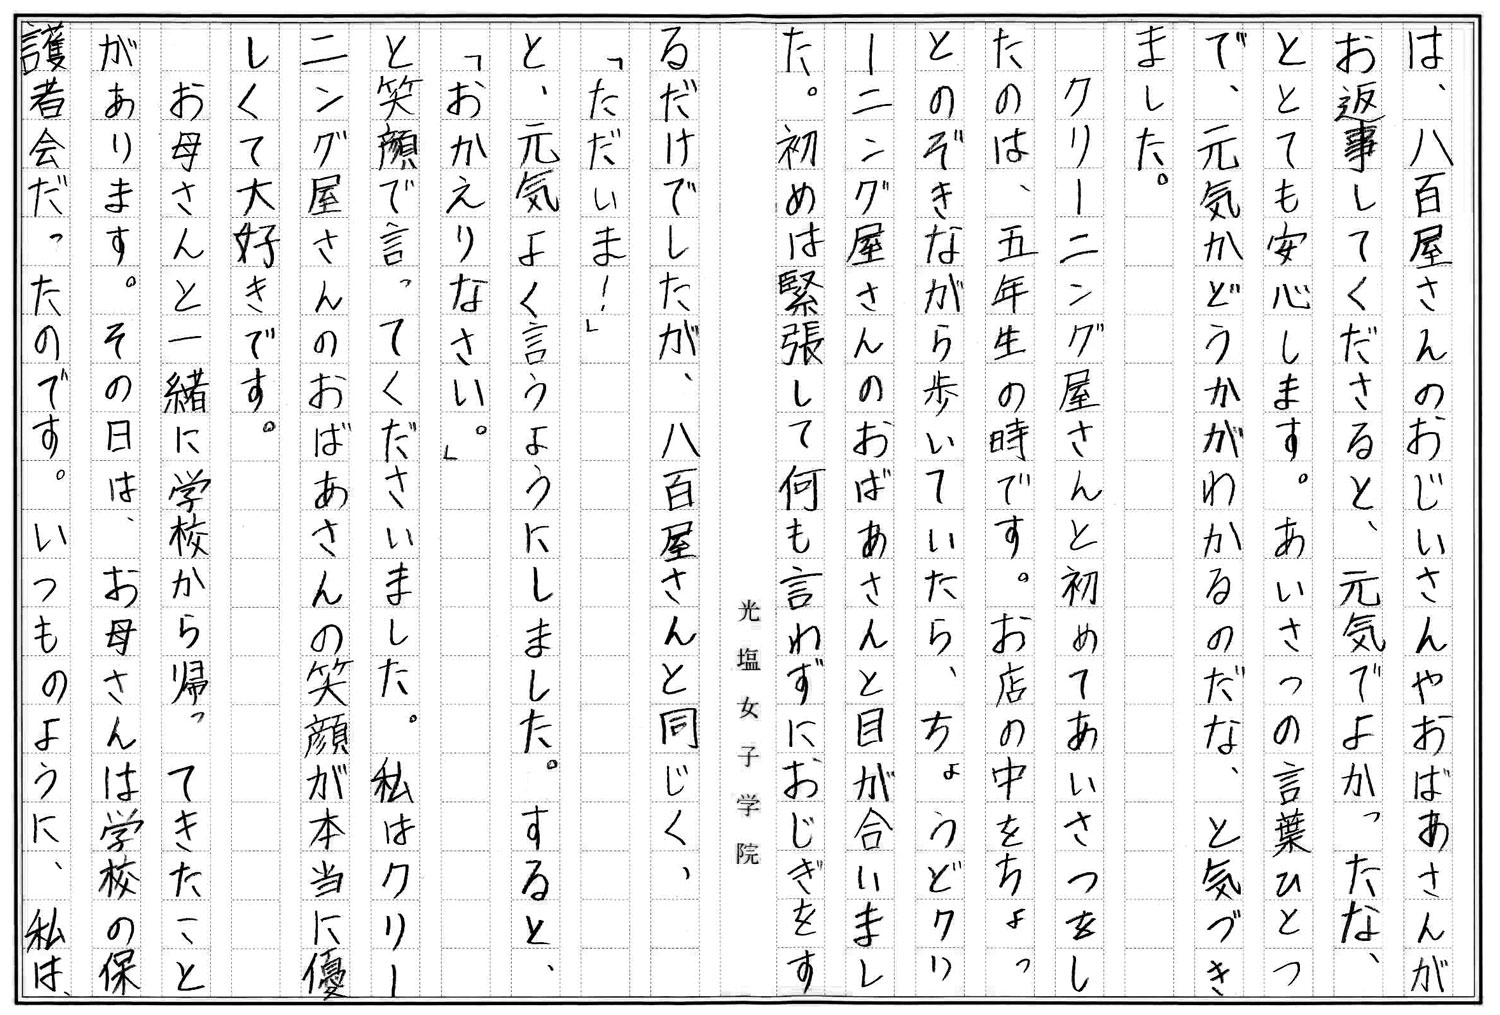 は、八百屋さんのおじいさんやおばあさんが
お返事してくださると、元気でよかったな、
ととても安心します。あいさつの言葉ひとつ
で、元気かどうかがわかるのだな、と気づき
ました。
クリーニング屋さんと初めてあいさつをし
たのは、五年生の時です。お店の中をちょっ
とのぞきながら歩いていたら、ちょうどクリ
ーニング屋さんのおばあさんと目が合いまし
た。初めは緊張して何も言わずにおじぎをす
光塩女子学院
るだけでしたが、八百屋さんと同じく、
「ただいま！」
と、元気よく言うようにしました。すると、
「おかえりなさい。」
と笑顔で言ってくださいました。私はクリー
ニング屋さんのおばあさんの笑顔が本当に優
しくて大好きです。
お母さんと一緒に学校から帰ってきたこと
があります。その日は、お母さんは学校の保
護者会だったのです。いつものように、私は、